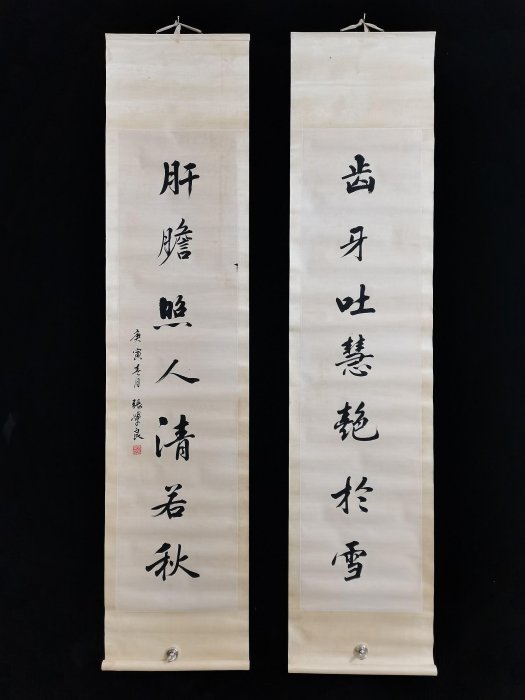 齿牙吐慧艳於雪
肝膽照人清若秋
庚寅春月 張學良